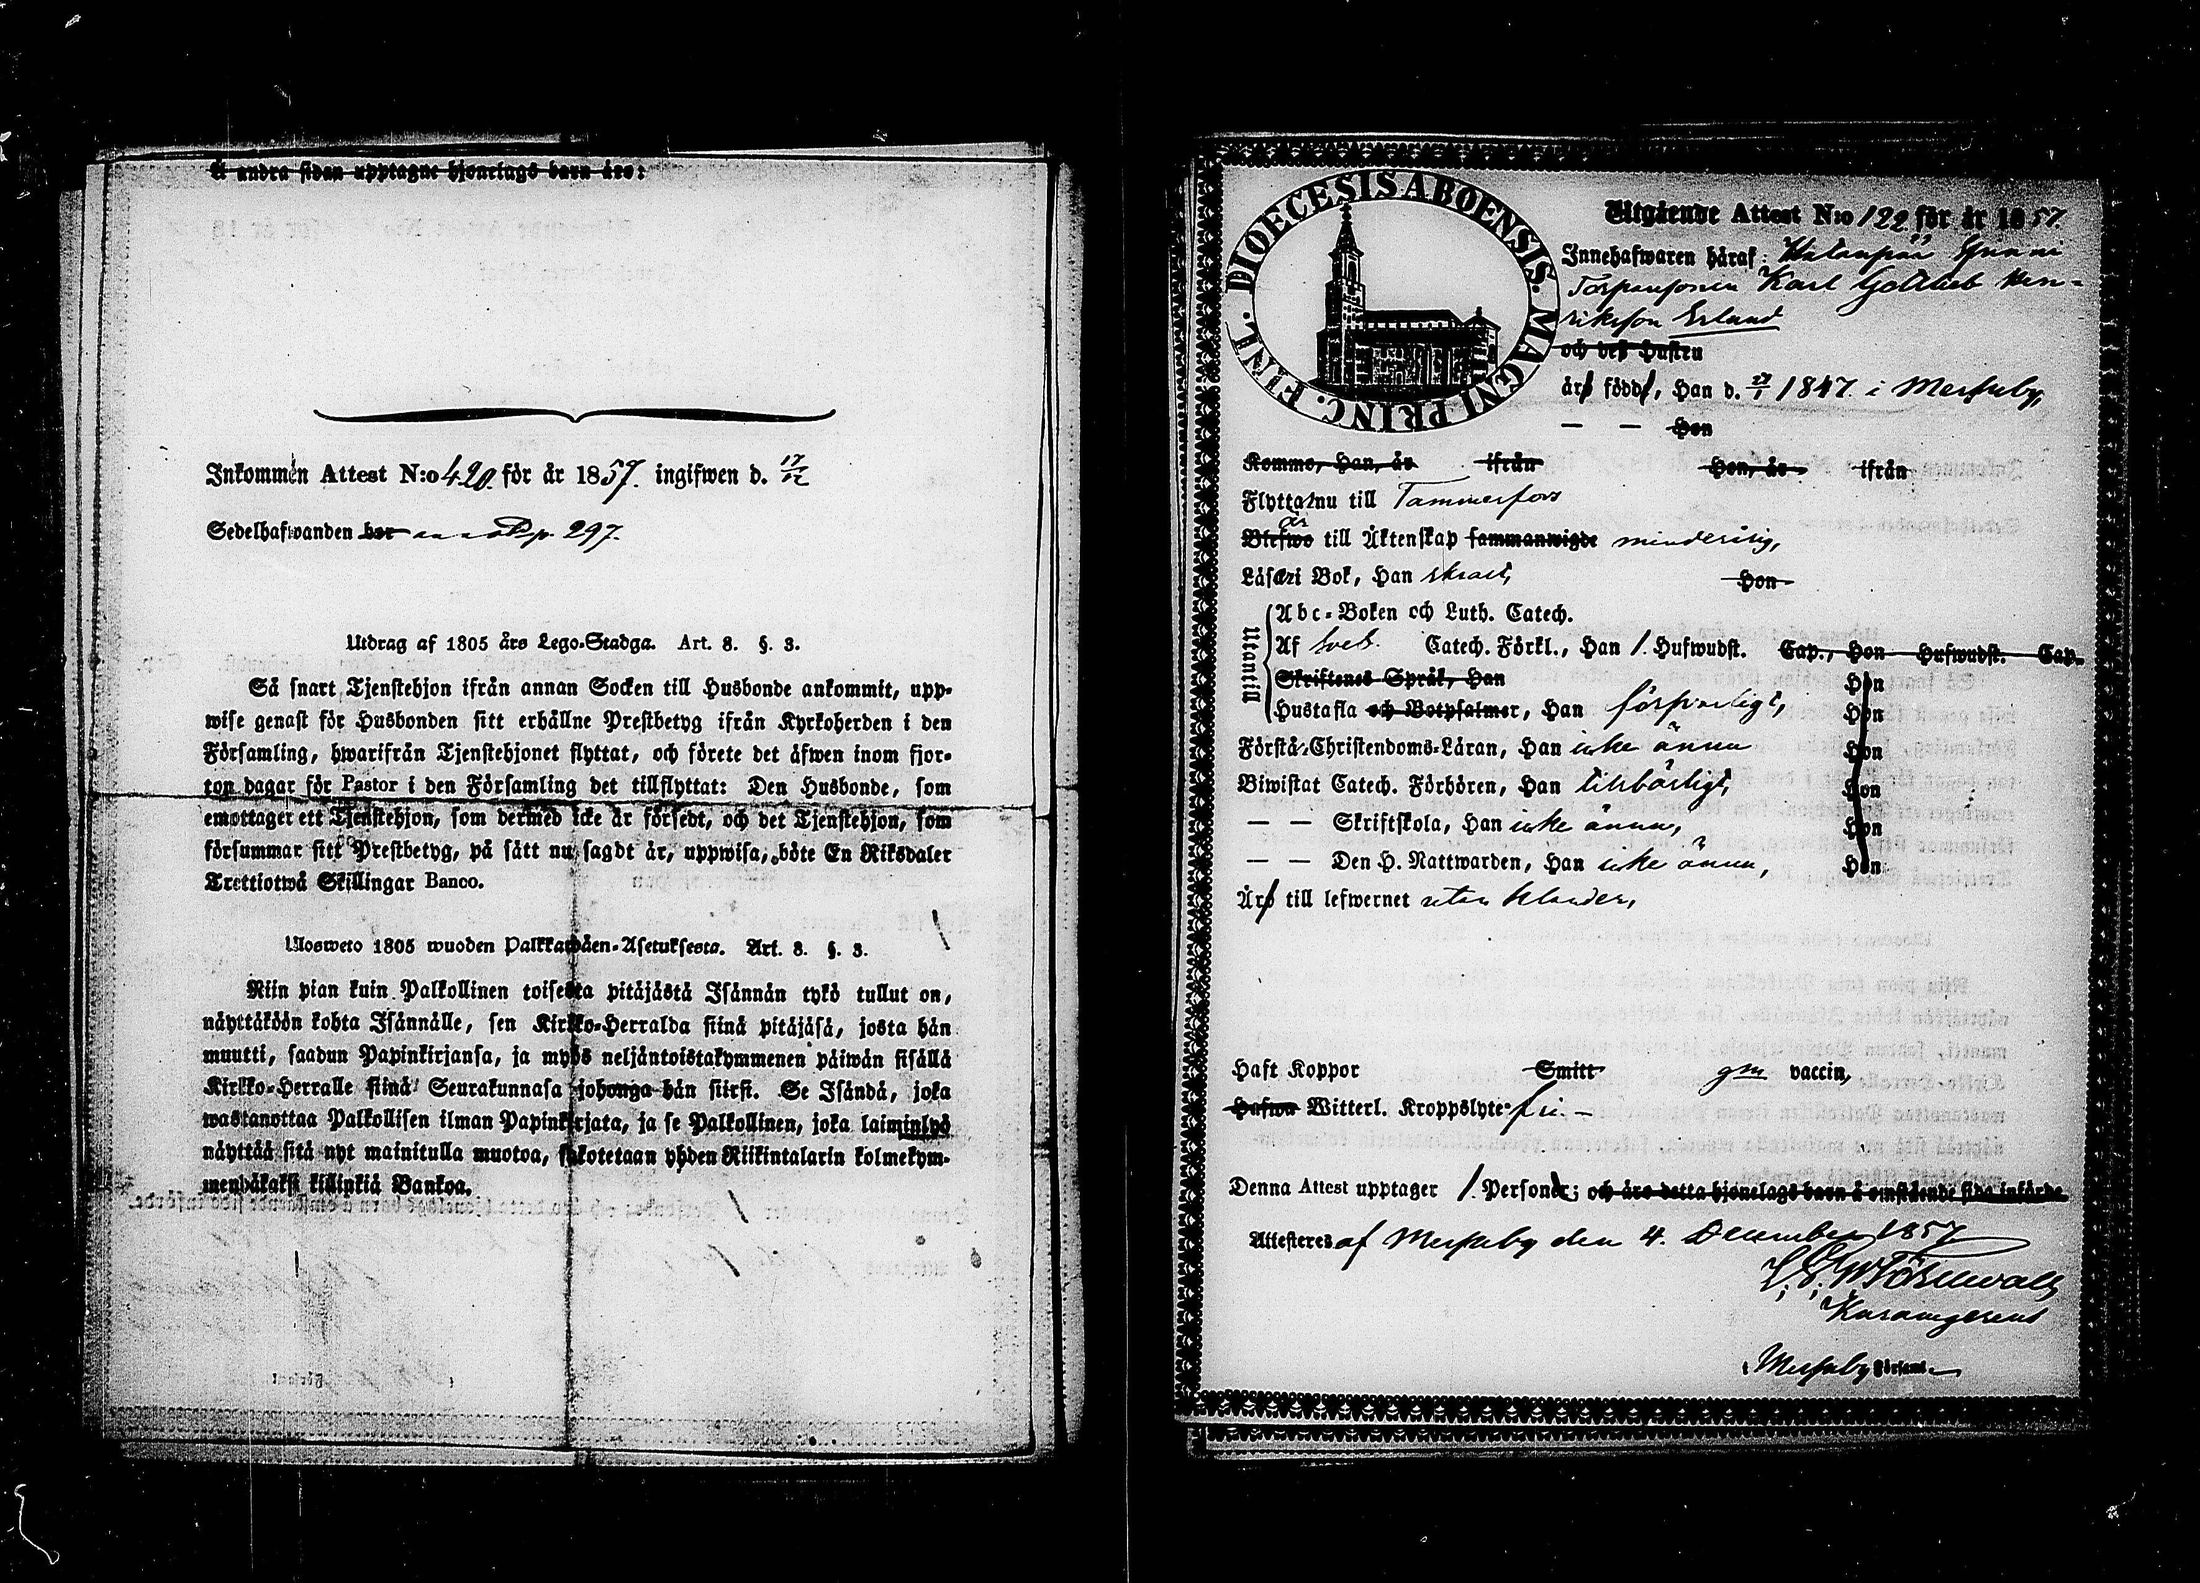 å andra sidan upptagne hjonelags barn äro:
Inkommen Attest N:o 420. för år 1857. ingifwen d. 17/12
Sedelhafwanden bor p. 297.
Utdrag af 1805 års Lego-Stadga. Art. 8. §. 3.
Så snart Tjenstehjon ifrån annan Socken till Husbonde ankommit, upp-
wise genast för Husbonden sitt erhållne Prestbetyg ifrån Kyrkoherden i den
Församling, hwarifrån Tjenstehjonet flyttat, och förete det äfwen inom fjor-
ton dagar för Pastor i den Församling det tillflyttat: Den Husbonde, som
emottager ett Tjenstehjon, som dermed icke är försedt, och det Tjenstehjon, som
försummar sitt Prestbetyg, på sätt nu sagdt är, uppwisa, böte En Riksdaler
Trettiotwå Skillingar Banco.
Ulosweto 1805 wuoden Palkkawäen-Asetuksesta. Art. 8. §. 3.
Niin pian kuin Palkollinen toisesta pitäjästä Isännän tykö tullut on,
näyttäköön kohta Isännälle, sen Kirkko-Herralda siinä pitäjäsä, josta hän
muutti, saadun Papinkirjansa, ja myös neljäntoistakymmenen päiwän sisällä
Kirkko-Herralle siinä Seurakunnasa johonga hän siirsi. Se Isändä, joka
wastanottaa Palkollisen ilman Papinkirjata, ja se Palkollinen, joka laiminlyö
näyttää sitä nyt mainitulla muotoa, sakotetaan yhden Riikintalarin kolmekym-
mendäkaksi killinkiä Bankoa.
DIOECESIS ABOENSIS. MAGNI PRINC. FINL.
Utgående Attest N:o 122 för år 1857.
Innehafwaren häraf:
Torparesonen Karl Gottlieb Hen-
rikson Erlund
och deß Hustru
äro födde, Han d. 27/1 1847. i Merikeby,
— — Hon
Kommo, Han, år ifrån Hon, år ifrån
Flytta nu till Tammerfors
är
Blefwo till Äktenskap sammanwigde minderårig,
Läsa i Bok, Han skralt, Hon
Utantill
Abc-Boken och Luth. Catech.
Af Sveb. Catech. Förkl., Han 1. Hufwudst. Cap., Hon Hufwudst. Cap.
Skriftenes Språk, Han Hon
Hustafla och Botpsalmer, Han försvarligt, Hon
Förstå Christendoms-Läran, Han icke ännu Hon
Biwistat Catech. Förhören, Han tillbörligt, Hon
— — Skriftskola, Han icke ännu, Hon
— — Den H. Nattwarden, Han icke ännu, Hon
Äro till lefwernet utan klander,
Haft Koppor Smitt gm vaccin,
Hafwa Witterl. Kroppslyte fri. —
Denna Attest upptager 1. Personer; och äro detta hjonelags barn å omstående sida införde.
Attesteres af Merikeby den 4. December 1857